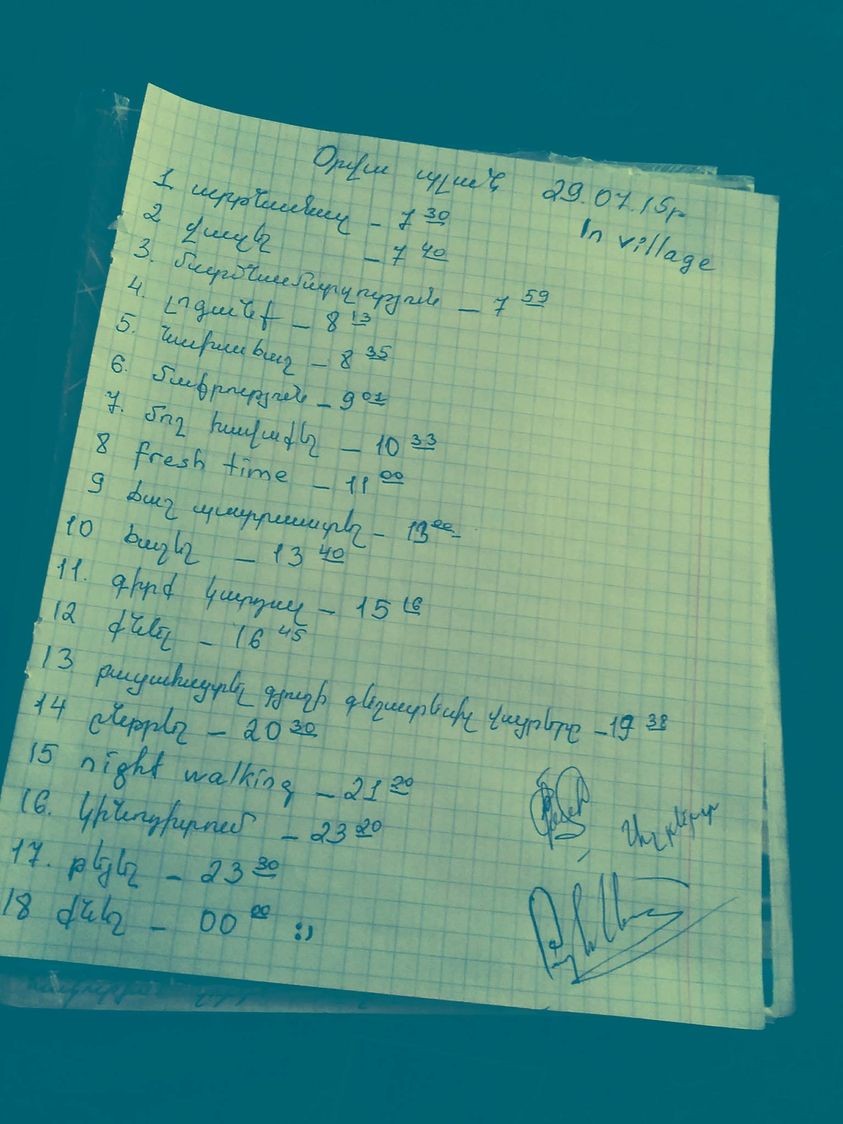 Օրվա պլան 29.07.15թ
In village
1 արթնանալ – 7 30
2 վազել – 7 40
3. մարմնամարզություն – 7 59
4. լոգանք – 8 13
5. նախաճաշ – 8 35
6. մաքրություն – 9 01
7. մող խաղալ – 10 33
8 fresh time – 11 00
9 ճաշ պատրաստել – 13 00
10 ճաշել – 13 40
11. գիրք կարդալ – 15 16
12 քնել – 16 45
13 բացահայտել գյուղի գեղատեսիլ վայրերը – 19 38
14 ընթրել – 20 30
15 night walking – 21 20
16. կինոդիտում – 23 20
17. թեյել – 23 30
18 քնել – 00 00 :)